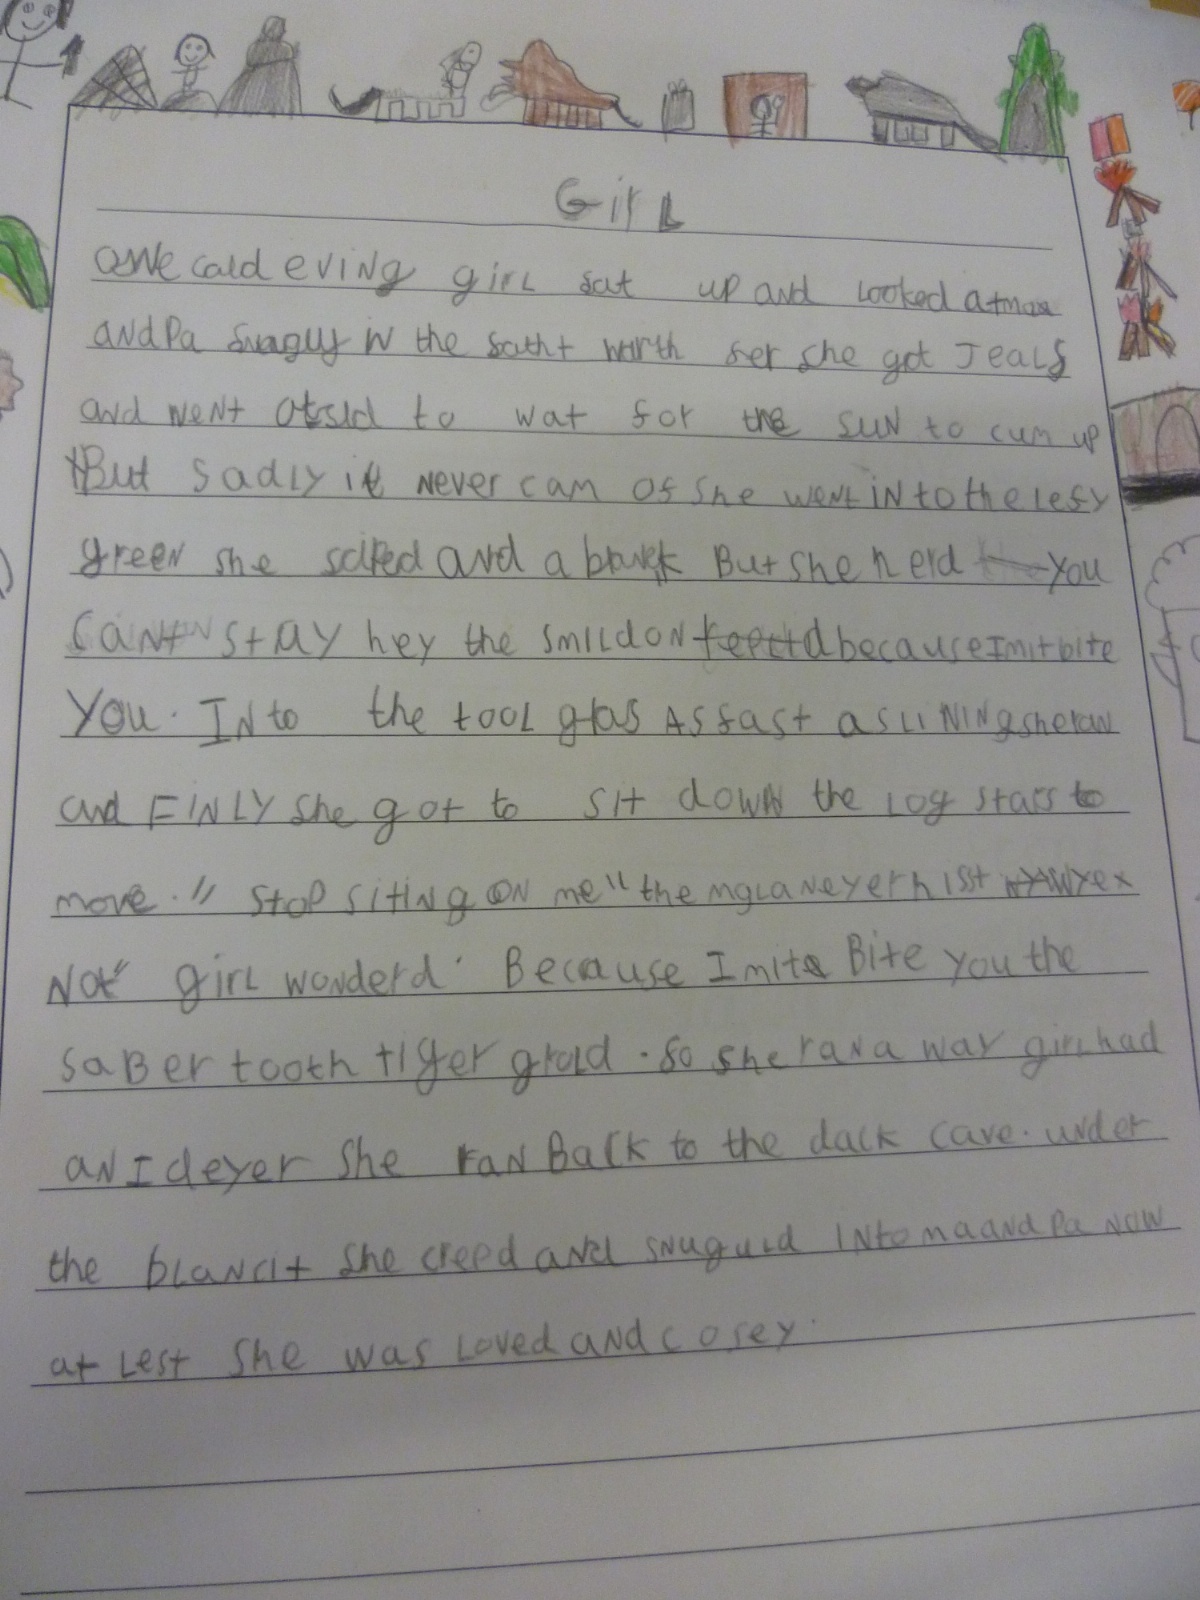 Girl
owe cald eving girl sat up and looked at maa
and Pa snagly in the satht warth fer she got Jeals
and went otsid to wat for the sun to cum up
But sadly it never cam of she went in to the lefy
green she sciped and a branck But she herd you
cant stay hey the smildon because I mit bite
you. Into the tool glas As fast as lining she raw
and FINLY she got to sit down the log stars to
move. " stop siting on me" the mglaneyer hisst yex
Not" girl wonderd. Because I mite Bite you the
saBer tooth tiger grold. so she ran a way girl had
an I deyer she ran Back to the dack cave. under
the blancit she creped and snuguld into ma and Pa now
at lest she was loved and cosey.